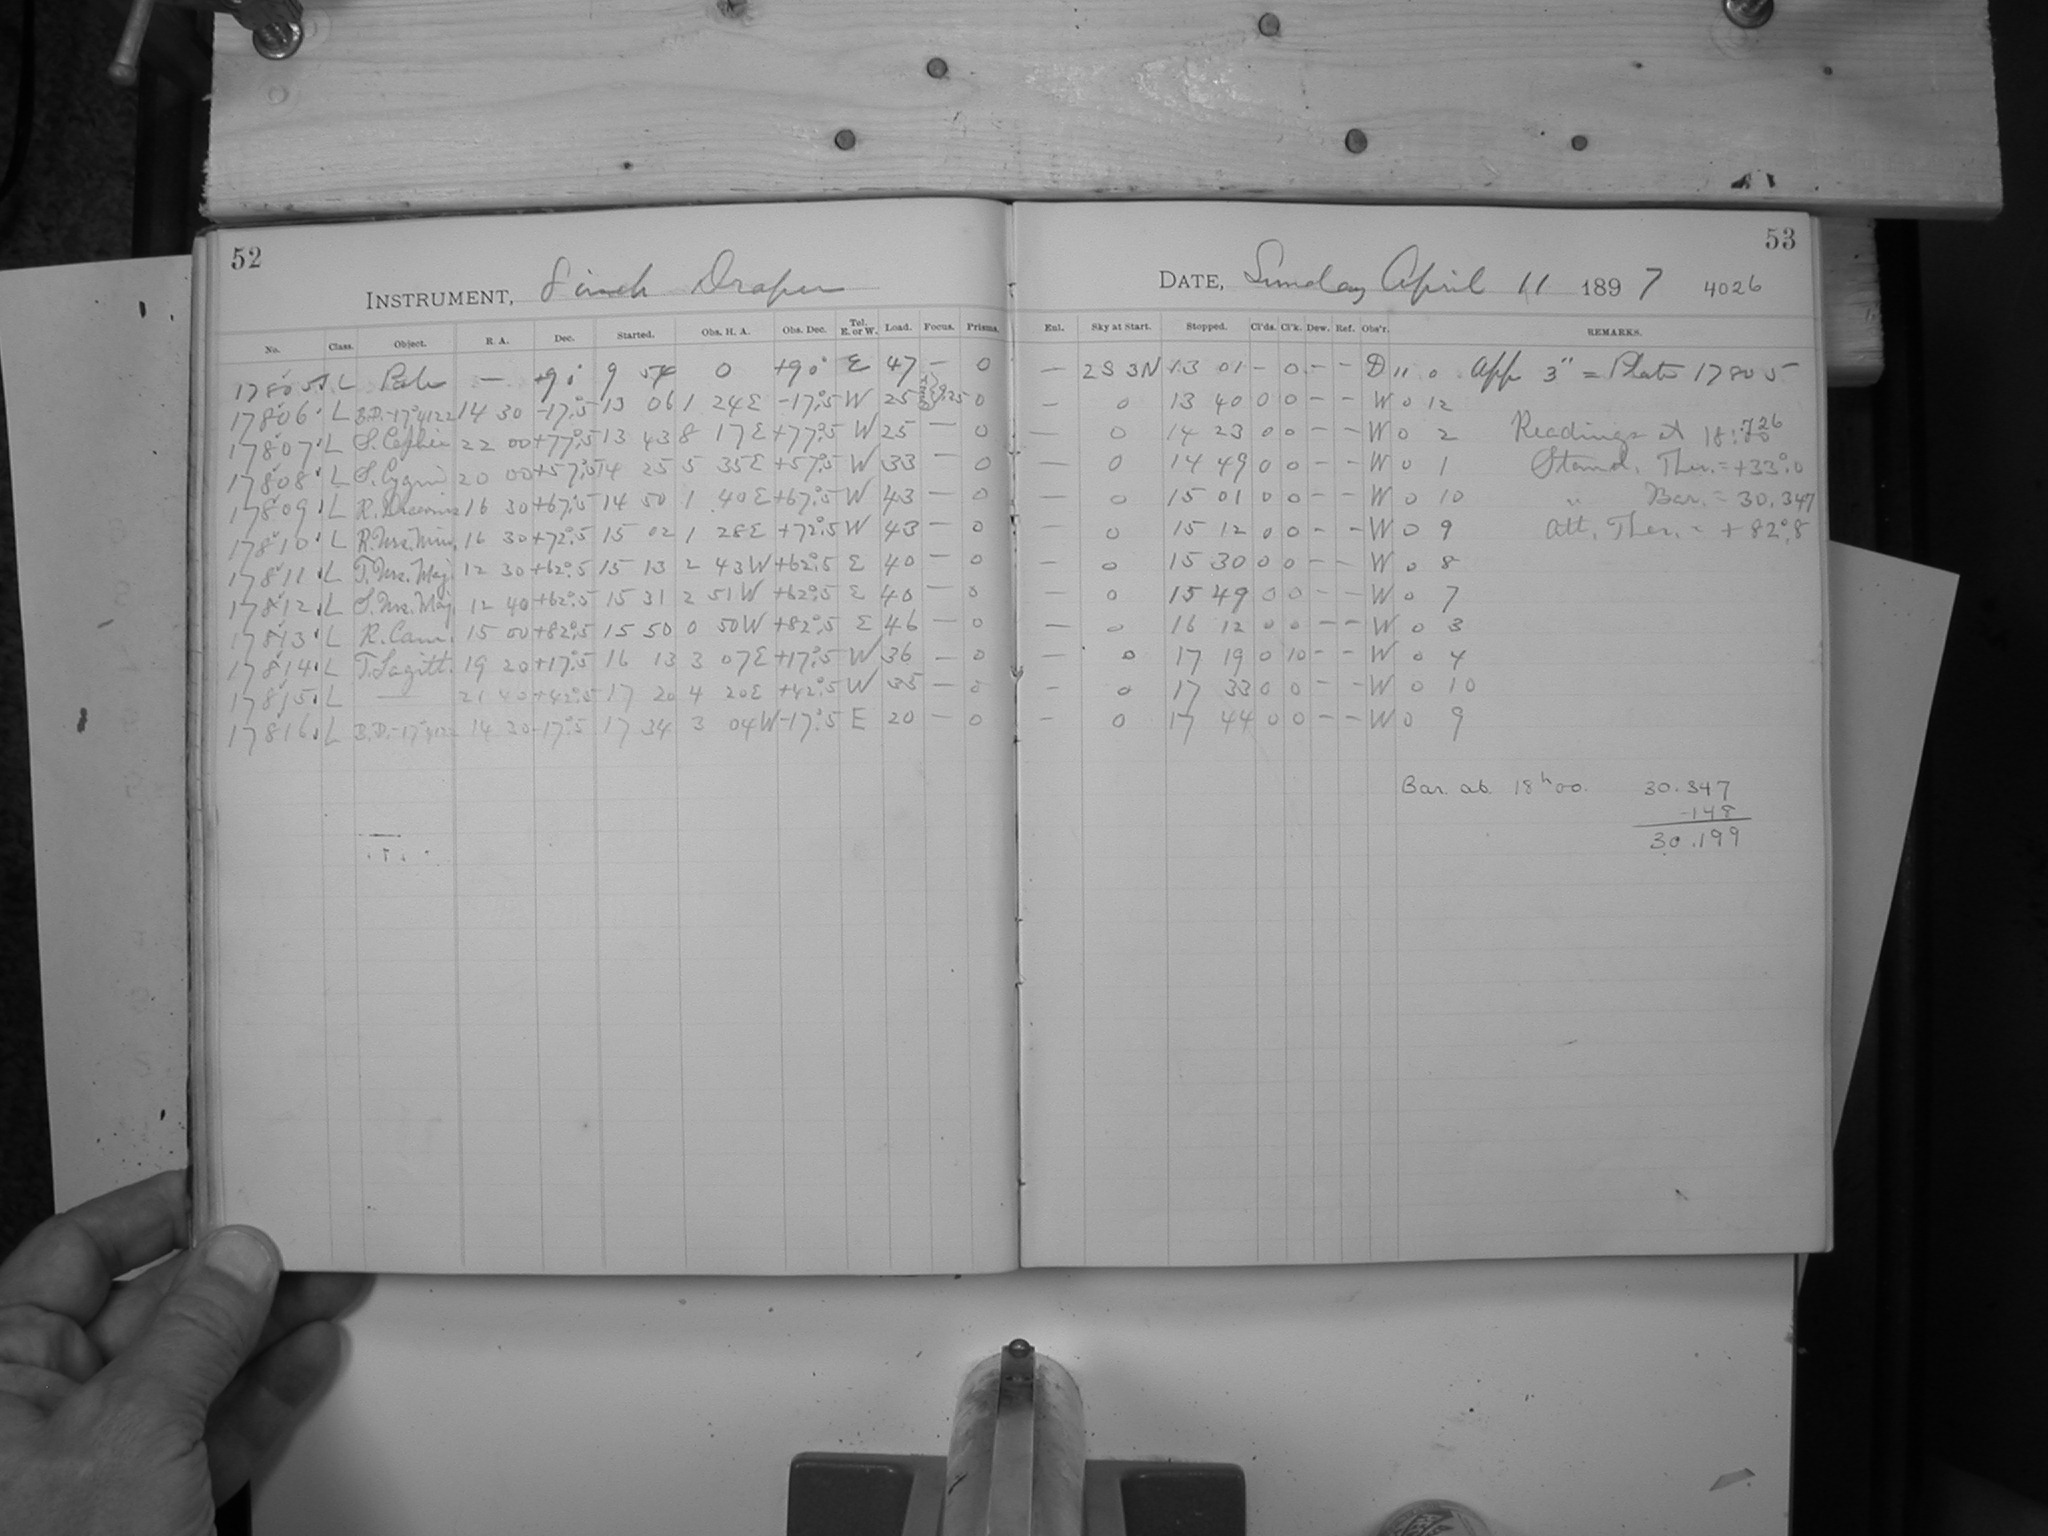 52
INSTRUMENT, 8 inch Draper
No. Class. Object. R. A. Dec. Started. Obs. H. A. Obs. Dec. Tel. E. or W. Load. Focus. Prisms.
17805 L Pole — +90° 9 54 0 +90° E 47 — 0
17806 L B.D.-17°4122 14 30 -17°.5 13 06 1 24E -17°.5 W 25 9.25 0
17807 L S. Cephei 22 00 +77°.5 13 43 8 17E +77°.5 W 25 — 0
17808 L S. Cygni 20 00 +57°.5 14 25 5 35E +57°.5 W 33 — 0
17809 L R. Draconis 16 30 +67°.5 14 50 1 40E +67°.5 W 43 — 0
17810 L R. Urs. Min. 16 30 +72°.5 15 02 1 28E +72°.5 W 43 — 0
17811 L T. Urs. Maj. 12 30 +62°.5 15 13 2 43W +62°.5 E 40 — 0
17812 L S. Urs. Maj. 12 40 +62°.5 15 31 2 51W +62°.5 E 40 — 0
17813 L R. Cam. 15 00 +82°.5 15 50 0 50W +82°.5 E 46 — 0
17814 L T. Sagitt. 19 20 +17°.5 16 13 3 07E +17°.5 W 36 — 0
17815 L — 21 40 +42°.5 17 20 4 20E +42°.5 W 35 — 0
17816 L B.D.-17°4122 14 30 -17°.5 17 34 3 04W -17°.5 E 20 — 0
53
DATE, Sunday April 11 1897 4026
Enl. Sky at Start. Stopped. Cl'ds. Cl'k. Dew. Ref. Obs'r. REMARKS.
— 2S 3N 13 01 - 0 - - D 11 0 App 3" = Plate 17805
— 0 13 40 0 0 - - W 0 12
— 0 14 23 0 0 - - W 0 2 Readings at 18:
— 0 14 49 0 0 - - W 0 1 Stand. Ther. = +33°.0
— 0 15 01 0 0 - - W 0 10 " Bar. = 30.347
— 0 15 12 0 0 - - W 0 9 Att. Ther. = +82°.8
— 0 15 30 0 0 - - W 0 8
— 0 15 49 0 0 - - W 0 7
— 0 16 12 0 0 - - W 0 3
— 0 17 19 0 10 - - W 0 4
- 0 17 33 0 0 - - W 0 10
- 0 17 44 0 0 - - W 0 9
Bar. ab. 18h00. 30.347
-148
30.199